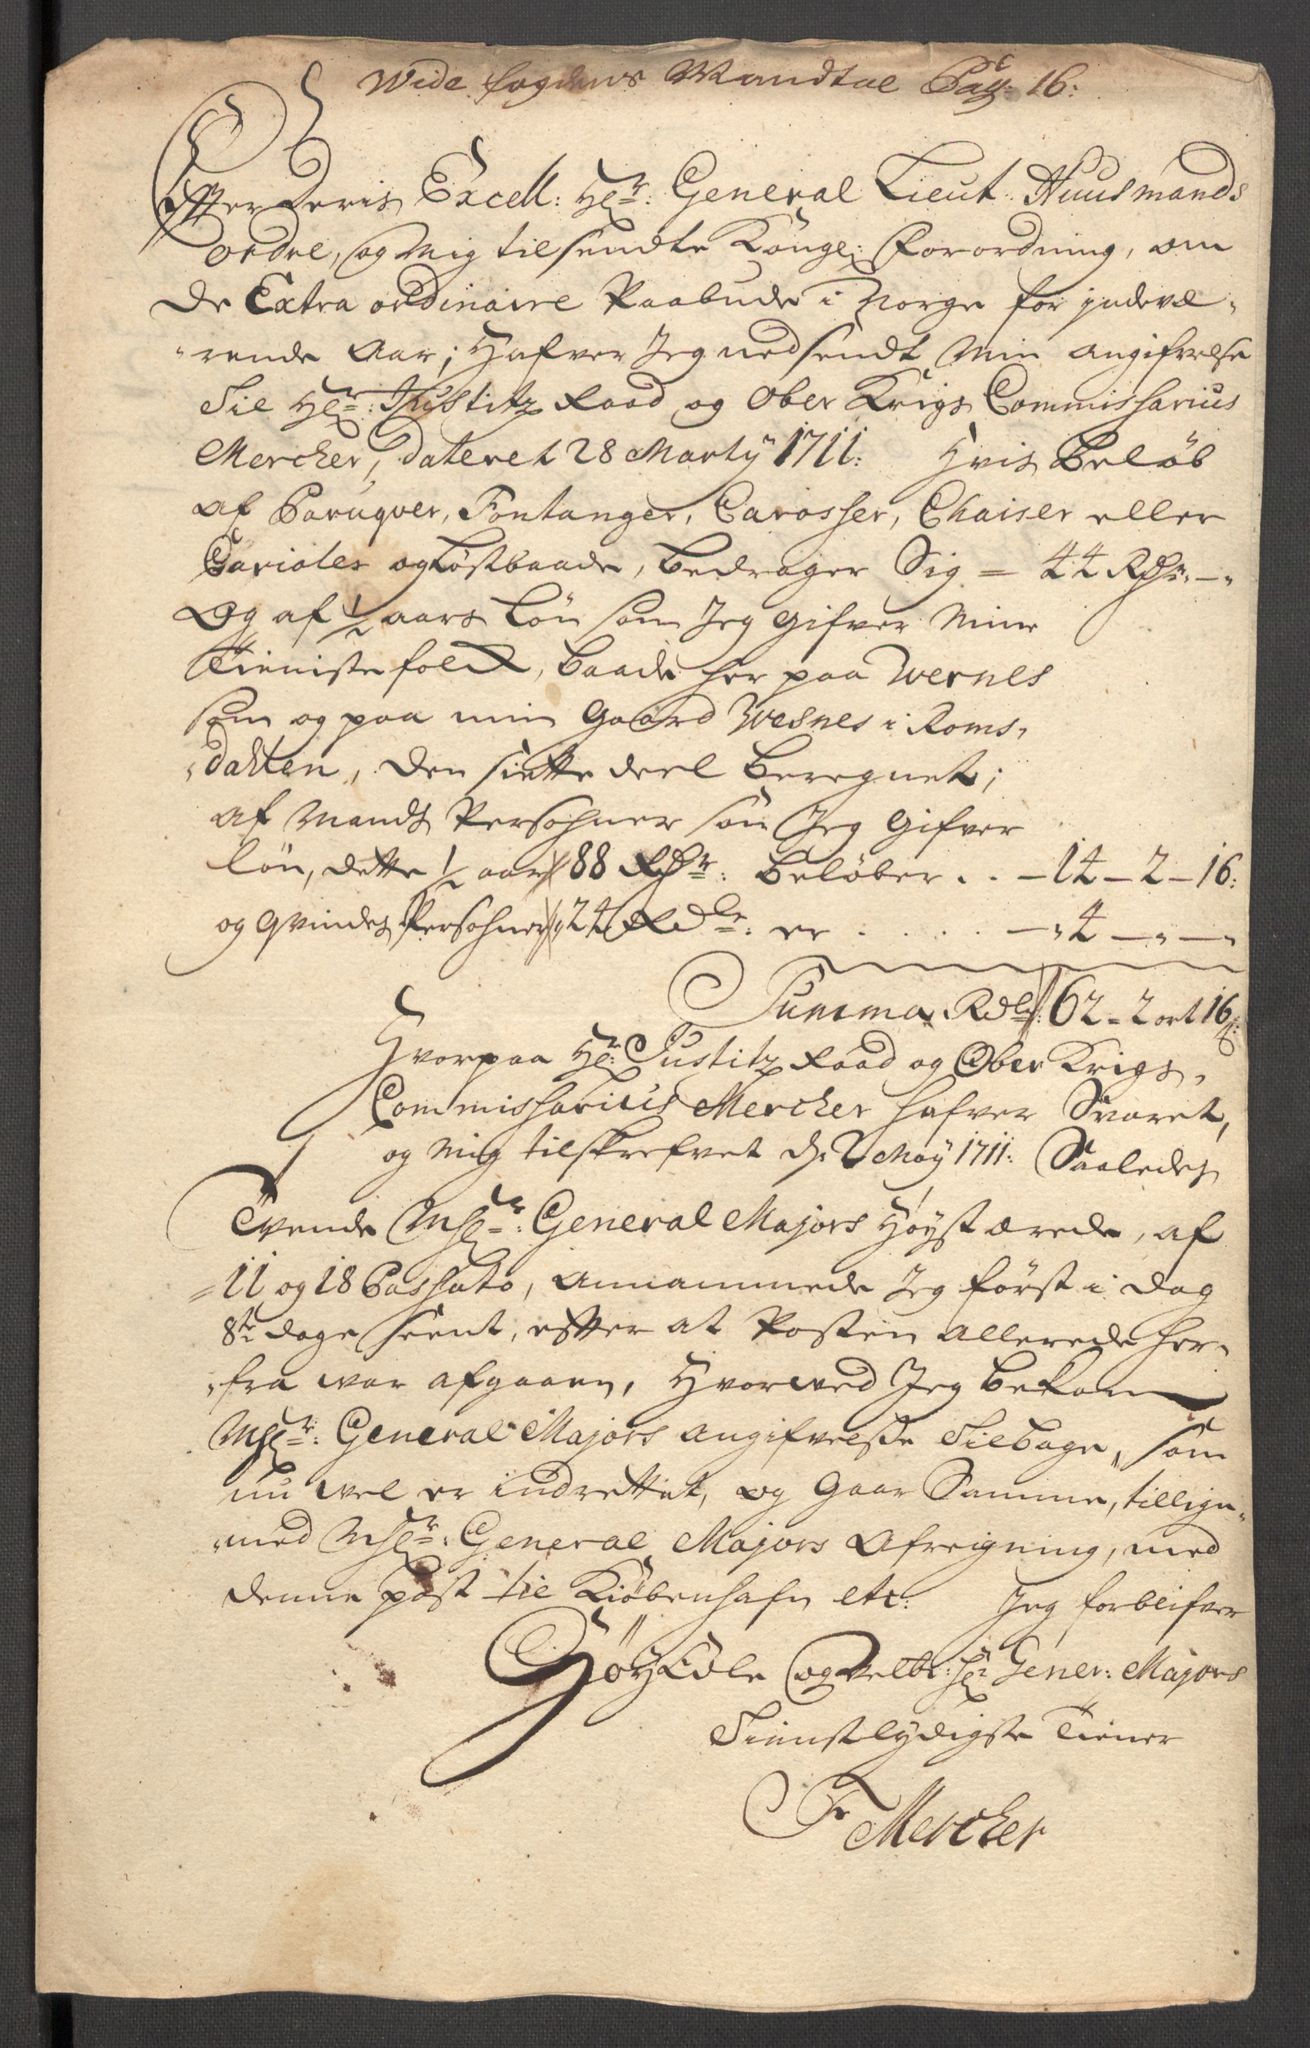 Wide fogdens Mandtal Pag: 16:
Efter Deris Excell: Hr: General Lieut: Huusmands
ordre, og Mig tilsendte Kongl: Forordning, om
De Extra ordinaire Paabude i Norge for jndevæ-
-rende Aar; Hafver Jeg nedsendt Min Angifvelse
Til Hr: Justitz Raad og Ober Krigs Commissarius
Mercker, dateret 28 Martij 1711: Hvis Beløb
af Paruqver, Fontanger, Carosser, Chaiser eller
Carioler og Løstbaade, bedrager Sig = 44 Rdr: - "
Og af 1/2 aars Løn som Jeg Gifver Mine
Tieniste folck, baade her paa Wernes
som og paa min Gaard Wesnes i Roms-
dahlen, den siette deel beregnet;
af Mands Persohner som Jeg Gifver
løn, dette 1/2 aar 88 Rdr: beløber . . - 14 - 2 - 16:
og Qvindes Persohner 24 Rdlr: er . . . . - 4 - " - "
Summa Rdlr: 62 - 2 ort 16 s:
Hvorpaa Hr: Justitz Raad og Ober Krigs-
Commissarius Mercker hafver Svaret,
og Mig tilskrefvet d: 2 Maij 1711: Saaledes
Tvende Mhr: General Majors Høystærede, af
11 og 18 Passato, annammede Jeg først i dag
8te dage seent, efter at Posten allerede her-
-fra war afgaaen, Hvorved Jeg bekom
Mhr: General Majors angifvelse Tilbage, som
nu vel er indrettet, og Gaar Samme, tillige-
-med Mhr: General Majors Afreigning, med
denne post til Kiøbenhafn etc: Jeg forblifver
HøyEdle og Velb: Hr Gener: Majors
Tienstlydigste Tiener
Fr Mercker